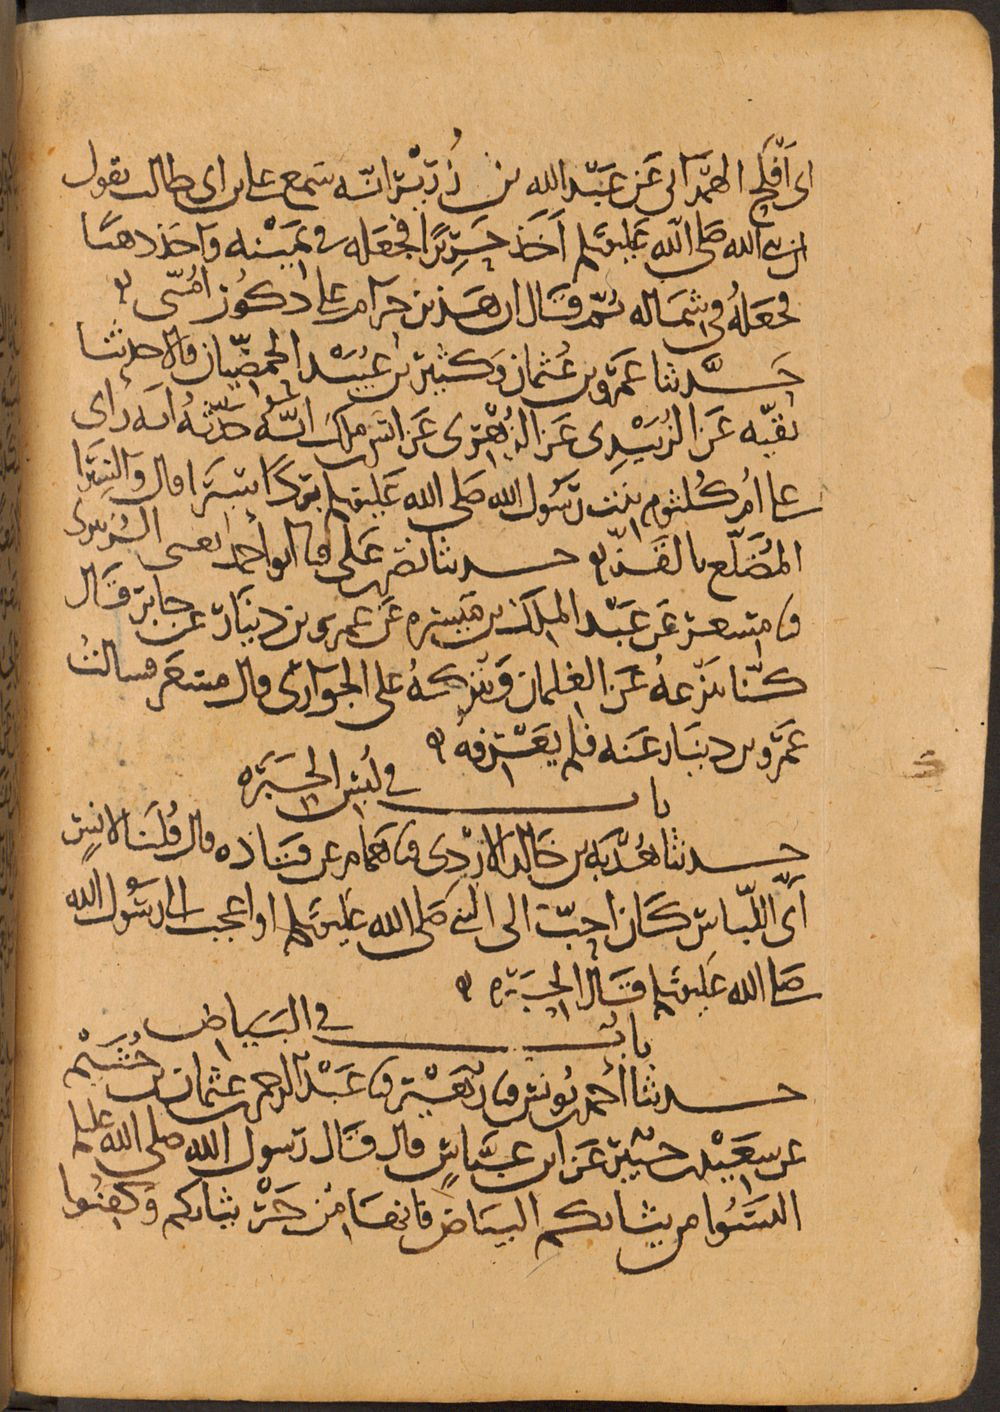 ابى أفلح الهمداني عن عبد الله بن زرير انه سمع على بن ابى طالب يقول
ان نبي الله صلى الله عليه وسلم أخذ حريرًا فجعله في يمينه واخذ ذهبا
فجعله في شماله ثم قال ان هذين حرام على ذكور أمتي
حدثنا عمرو بن عثمان وكثير بن عبيد الحمصيان قالا حدثنا
بقيه عن الزبيدي عن الزهري عن انس بن ملك انه حدثه انه رأى
على ام كلثوم بنت رسول الله صلى الله عليه وسلم بردا سيرا قال والسيرا
المضلع بالقز حدثنا نصر بن على ثنا ابو احمد يعنى الزبيرى
ثنا مسعر عن عبد الملك بن ميسره عن عمرو بن دينار عن جابر قال
كنا ننزعه عن الغلمان ونتركه على الجوارى قال مسعر فسالت
عمرو بن دينار عنه فلم يعرفه
باب في لبس الحبره
حدثنا هدبه بن خالد الازدي ثنا همام عن قتاده قال قلنا لانس
أى اللباس كان احب الى النبي صلى الله عليه وسلم او اعجب الى رسول الله
صلى الله عليه وسلم قال الحبره
باب في البياض
حدثنا أحمد بن يونس ثنا زهير ثنا عبد الله بن عثمان بن خثيم
عن سعيد بن جبير عن ابن عباس قال قال رسول الله صلى الله عليه وسلم
البسوا من ثيابكم البياض فانها من خير ثيابكم وكفنوا